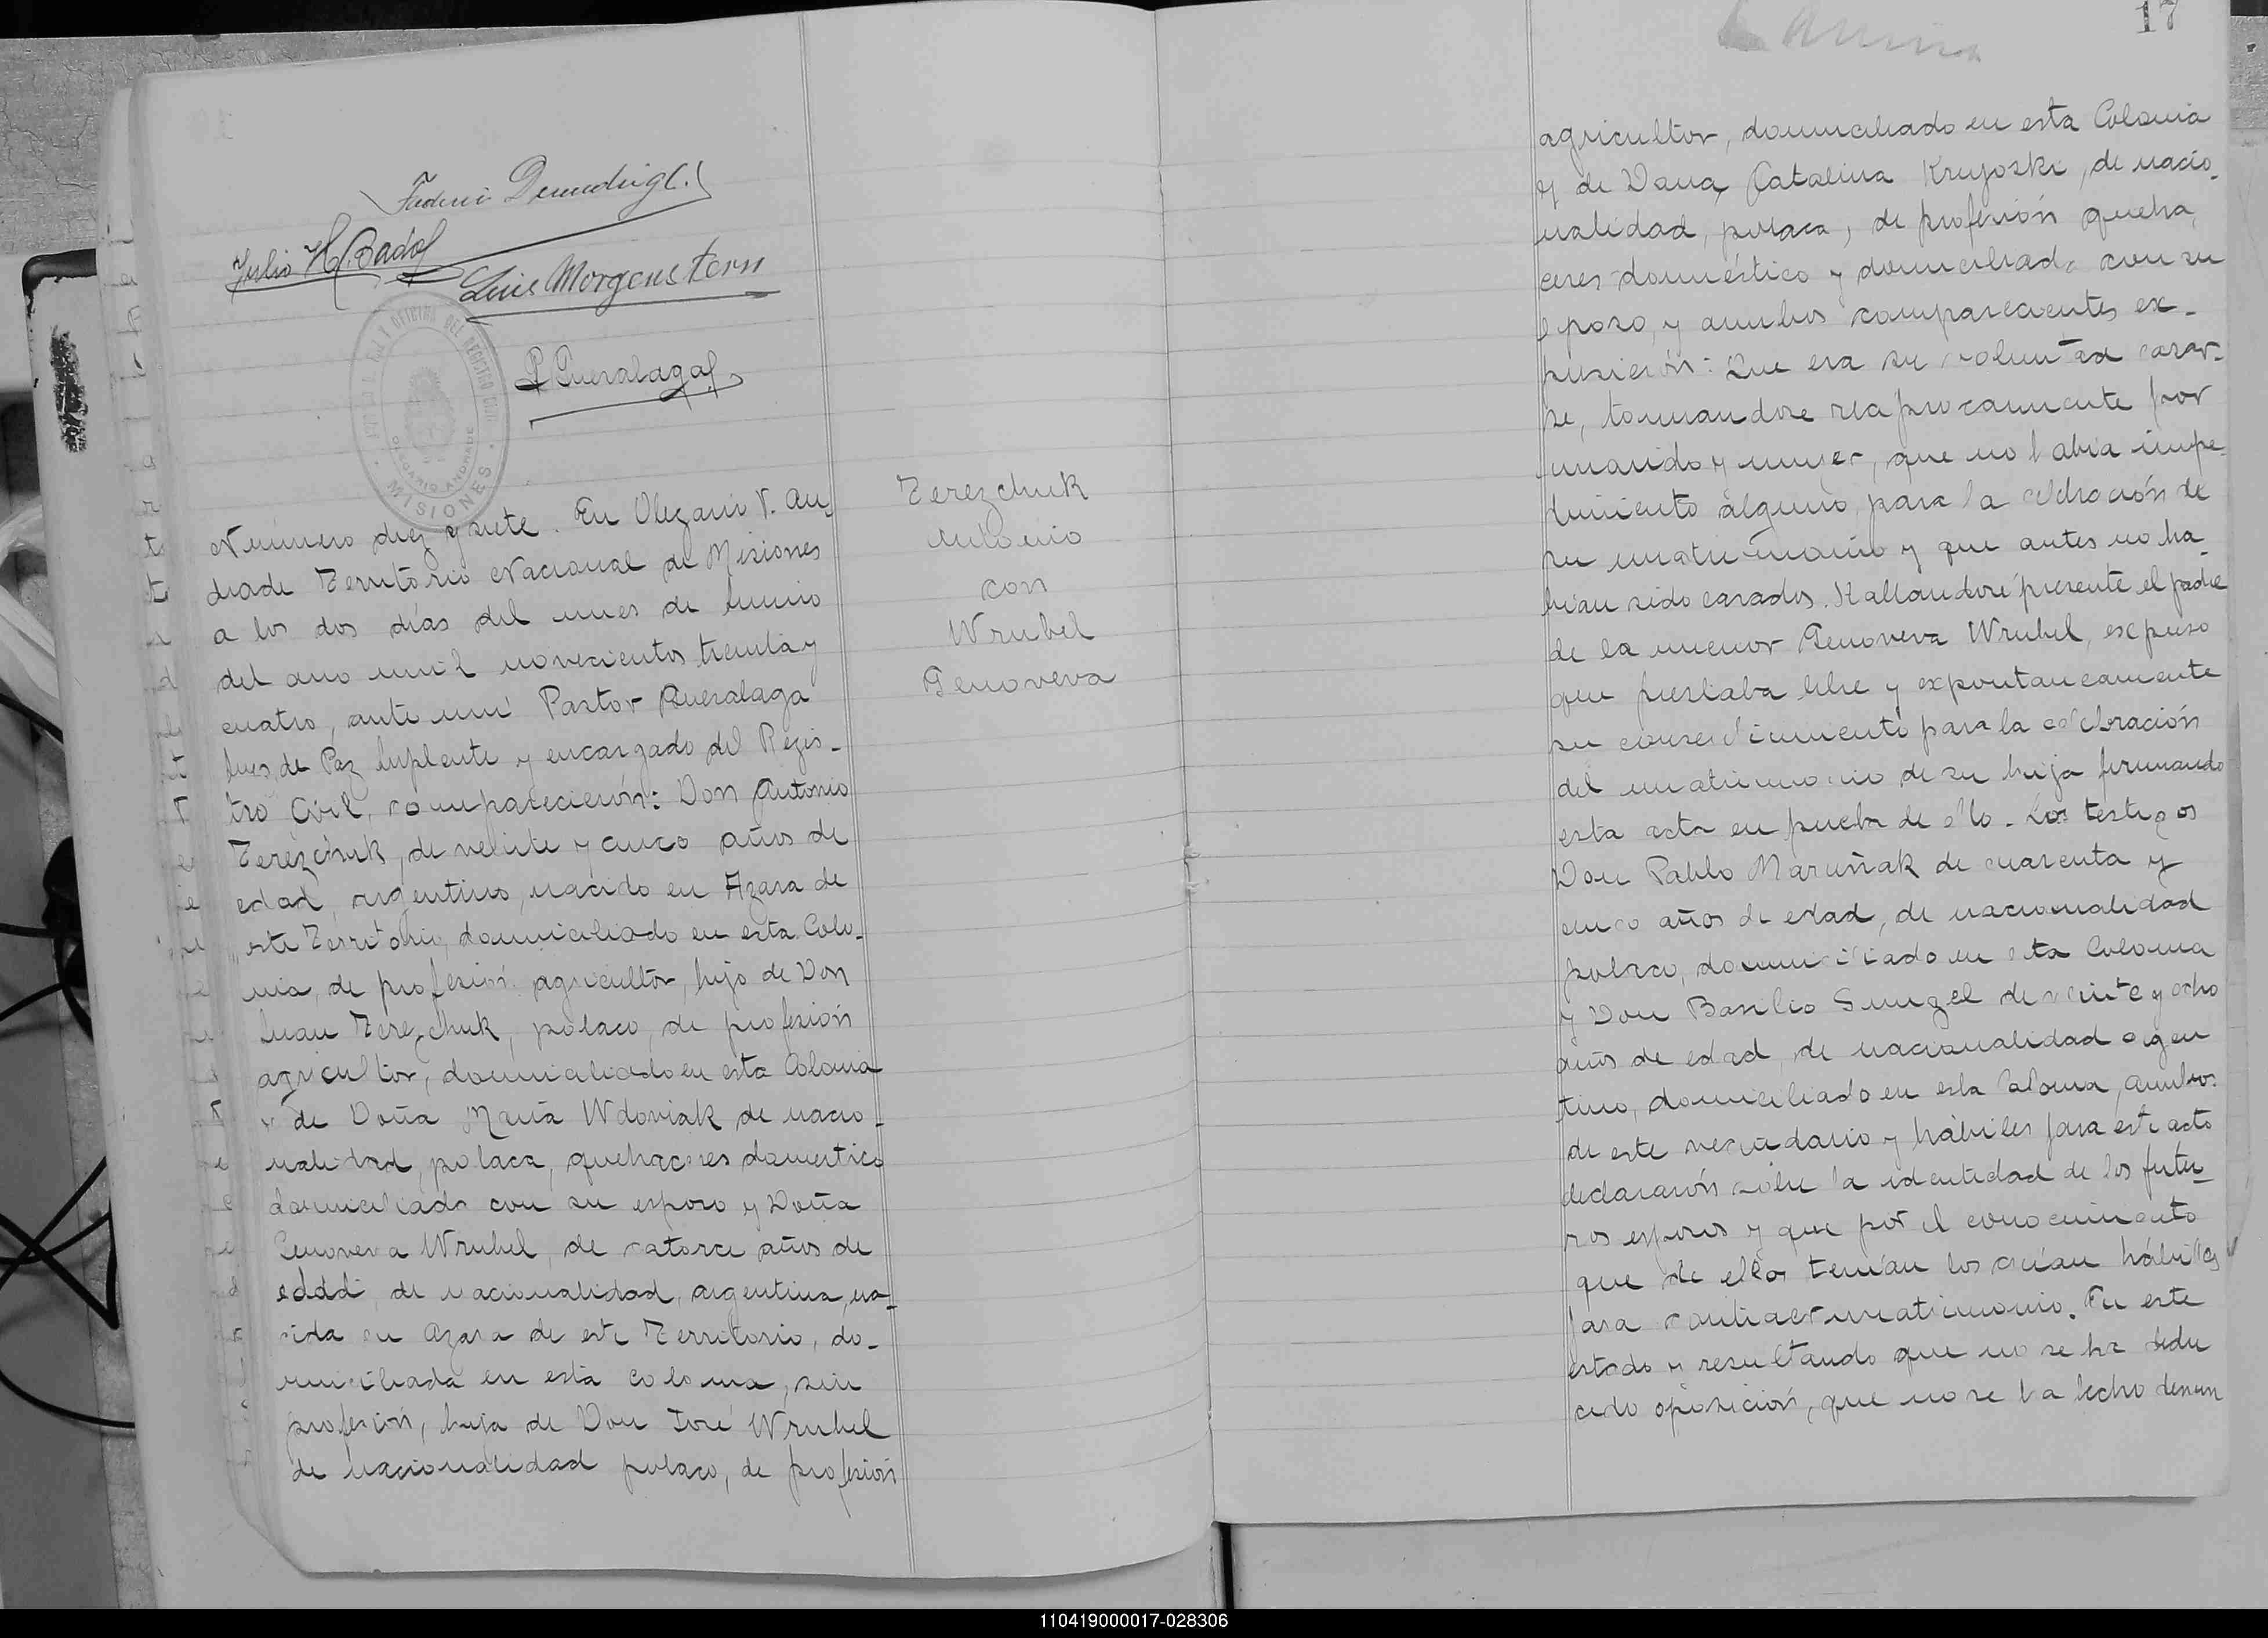 17
Julio H. Bado
Luis Morgenstern
P. Gueralaga
OFICINA DEL REGISTRO CIVIL
OLEGARIO ANDRADE
MISIONES
Número diez y siete. En Olegario V. An-
drade Territorio Nacional de Misiones
a los dos días del mes de Junio
del ano mil novecientos treinta y
cuatro, ante mi Pastor Gueralaga
Juez de Paz Suplente y encargado del Regis-
tro Civil, comparecierón: Don Antonio
Terezchuk, de veinte y cinco años de
edad, argentino, nacido en Azara de
este Territorio, domiciliado en esta Colo-
nia, de profesión agricultor, hijo de Don
Juan Terezchuk, polaco, de profesión
agricultor, domiciliado en esta Colonia
y de Doña Maria Wdoviak de nacio-
nalidad, polaca, quehaceres domestico
domiciliada con su esposo y Doña
Genoveva Wrubel, de catorce años de
edad, de nacionalidad, argentina, na-
cida en Azara de este Territorio, do-
miciliada en esta colonia, sin
profesión, hija de Don José Wrubel
de nacionalidad polaco, de profesión
Terezchuk
Antonio
con
Wrubel
Genoveva
agricultor, domiciliado en esta Colonia
y de Dona Catalina Kruyoski, de nacio-
nalidad, polaca, de profesión queha,
ceres doméstico y domiciliada con su
esposo, y ambos comparecientes ex-
pusierón: Que era su voluntad casar-
se, tomandose reciprocamente por
marido y mujer, que no habia impe-
dimiento alguno para la celebración de
su matrimonio y que antes no ha-
bian sido casados. Hallandose presente el padre
de la menor Genoveva Wrubel, expuso
que prestaba libre y expontaneamente
su consentimiento para la celebración
del matrimonio de su hija firmando
esta acta en prueba de ello. Los testigos
Don Pablo Maruñak de cuarenta y
cinco años de edad, de nacionalidad
polaco, domiciliado en esta Colonia
y Don Basilio Sungel de veinte y ocho
años de edad, de nacionalidad argen
tino, domiciliado en esta Colonia, ambos
de este vecindario y hábiles para este acto
declararón sobre la identidad de los futu-
ros esposos y que por el conocimiento
que de ellos tenían los creían hábiles
para contraer matrimonio. En este
estado y resultando que no se ha dedu
cido oposición, que no se ha hecho denun
110419000017-028306